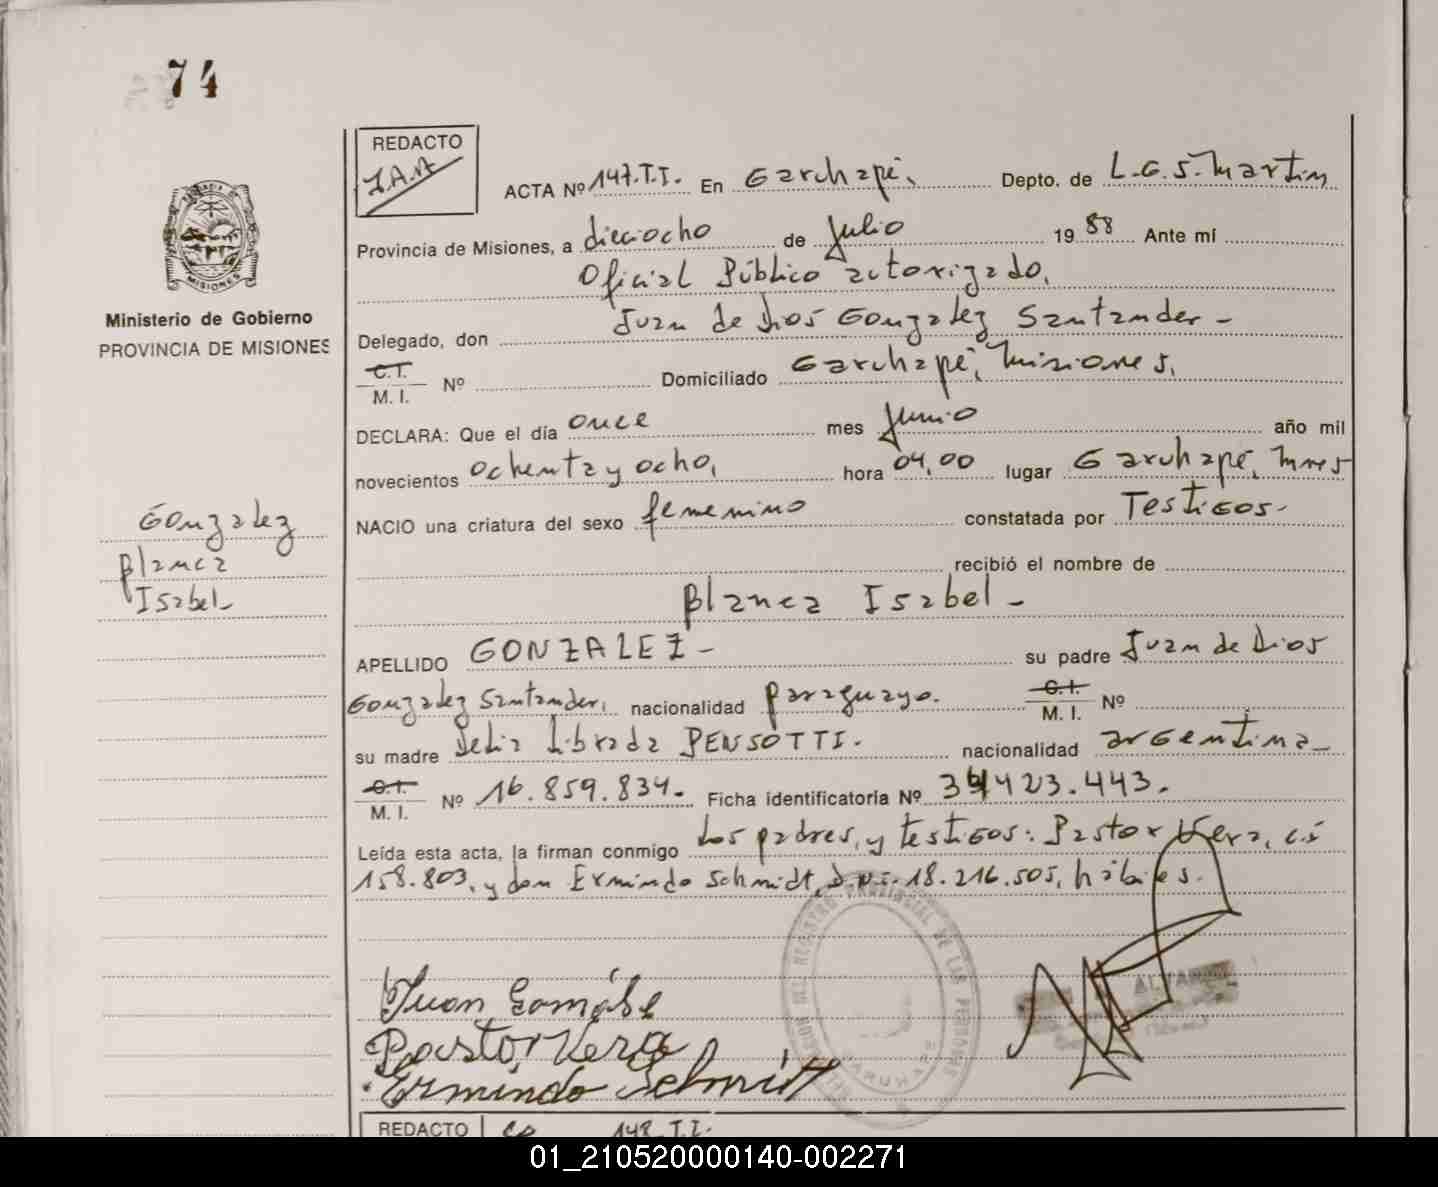 74
REDACTO
J.A.A
ACTA Nº 147.T.I. En Garuhapé, Depto. de L.G.S. Martín
Provincia de Misiones, a dieciocho de Julio 19 88 Ante mi
Oficial Público autorizado,
Delegado, don Juan de Dios Gonzalez Santander -
C.I.
M. I. Nº Domiciliado Garuhapé, Misiones,
DECLARA: Que el día once mes Junio año mil
novecientos ochenta y ocho, hora 04,00 lugar Garuhapé, Mnes
NACIO una criatura del sexo femenino constatada por Testigos-
recibió el nombre de
Blanca Isabel -
APELLIDO GONZALEZ - su padre Juan de Dios
Gonzalez Santander, nacionalidad paraguayo. C.I.
M. I. Nº
su madre Delia Librada PENSOTTI. nacionalidad argentina -
C.I.
M. I. Nº 16.859.834- Ficha identificatoria Nº 34423.443.
Leída esta acta, la firman conmigo Los padres, y testigos: Pastor Vera, c.i
158.803, y don Ermindo Schmidt, d.n.i. 18.216.505, hábiles.
Juan
Pastor Vera
Ermindo Schmidt
REDACTO 148.T.I.
MISIONES
Ministerio de Gobierno
PROVINCIA DE MISIONES
Gonzalez
Blanca
Isabel-
REGISTRO PROVINCIAL DE LAS PERSONAS
GARUHAPE
01_210520000140-002271